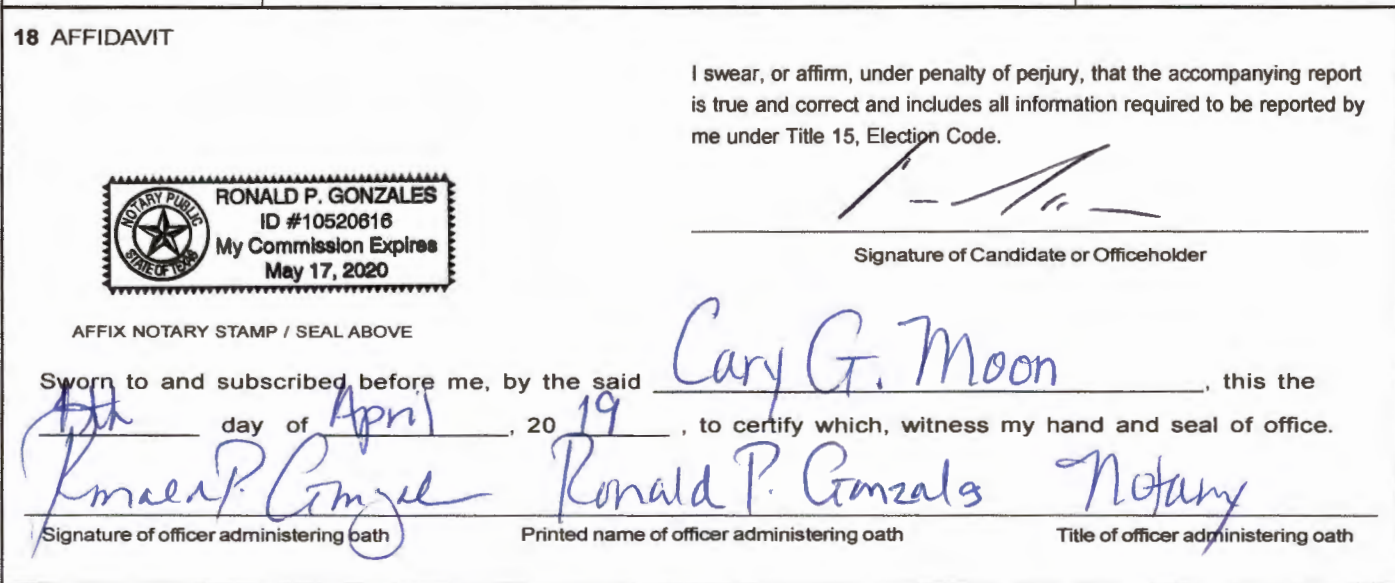 18 AFFIDAVIT
I swear, or affirm, under penalty of perjury, that the accompanying report
is true and correct and includes all information required to be reported by
me under Title 15, Election Code.
NOTARY PUBLIC
STATE OF TEXAS
RONALD P. GONZALES
ID #10520616
My Commission Expires
May 17, 2020
Signature of Candidate or Officeholder
AFFIX NOTARY STAMP / SEAL ABOVE
Sworn to and subscribed before me, by the said Cary G. Moon, this the
day of April, 20 19, to certify which, witness my hand and seal of office.
Ronald P. Gonzales Notary
Signature of officer administering oath Printed name of officer administering oath Title of officer administering oath